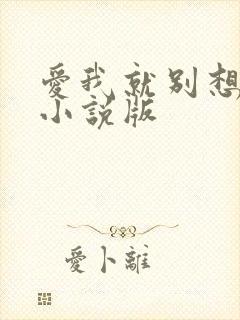 愛我就别想
小説版
愛卜離